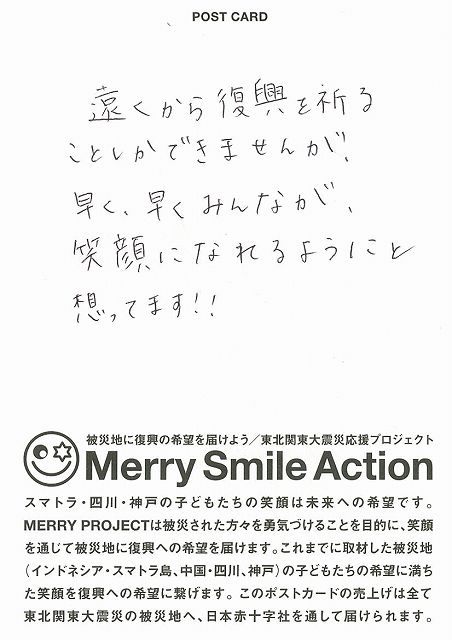 POST CARD
遠くから復興を祈る
ことしかできませんが、
早く、早くみんなが、
笑顔になれるようにと
想ってます!!
被災地に復興の希望を届けよう／東北関東大震災応援プロジェクト
Merry Smile Action
スマトラ・四川・神戸の子どもたちの笑顔は未来への希望です。
MERRY PROJECTは被災された方々を勇気づけることを目的に、笑顔
を通じて被災地に復興への希望を届けます。これまでに取材した被災地
（インドネシア・スマトラ島、中国・四川、神戸）の子どもたちの希望に満ち
た笑顔を復興への希望に繋げます。このポストカードの売上げは全て
東北関東大震災の被災地へ、日本赤十字社を通して届けられます。